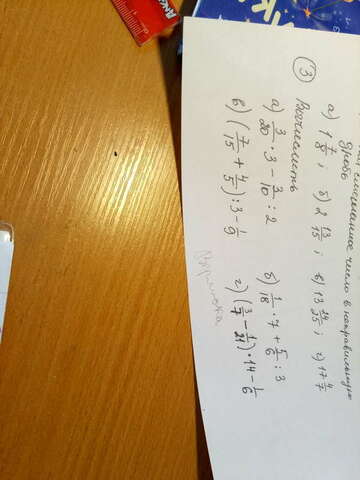 смешанное число в неправильную
дробь
а) 1 7/8 ; б) 2 13/15 ; в) 13 24/25 ; г) 17 4/7
③ Вычислить
а) 3/20 · 3 - 3/10 : 2
б) 1/18 · 7 + 5/6 : 3
в) (7/15 + 4/5) : 3 - 1/9
г) (3/7 - 1/21) · 14 - 1/6